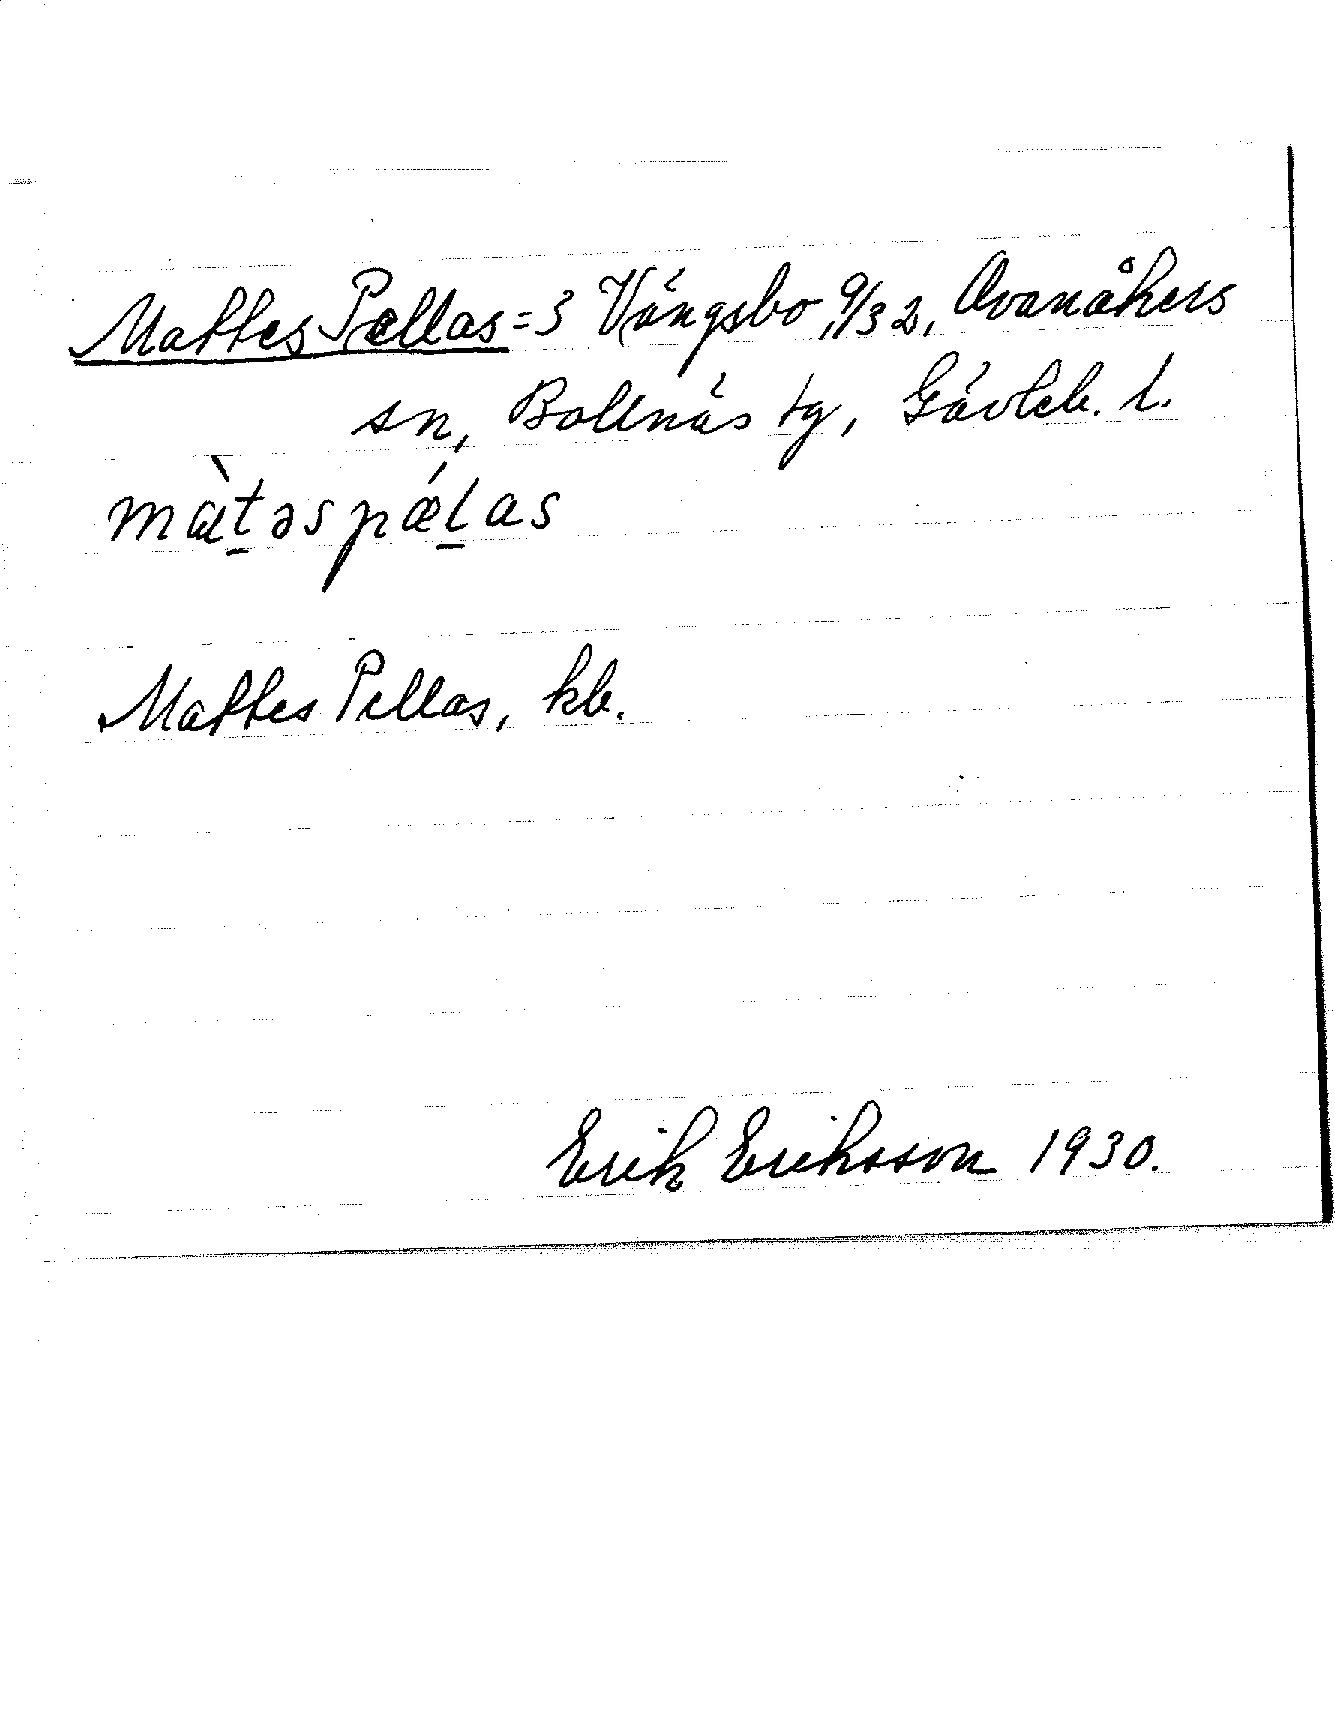 Mattes Pællas = 3 Vängsbo, 9/32, Ovanåkers
sn, Bollnäs tg, Gävleb. l.
mæ̀t̠əspǽl̠as
Mattes Pellas, kb.
Erik Eriksson 1930.